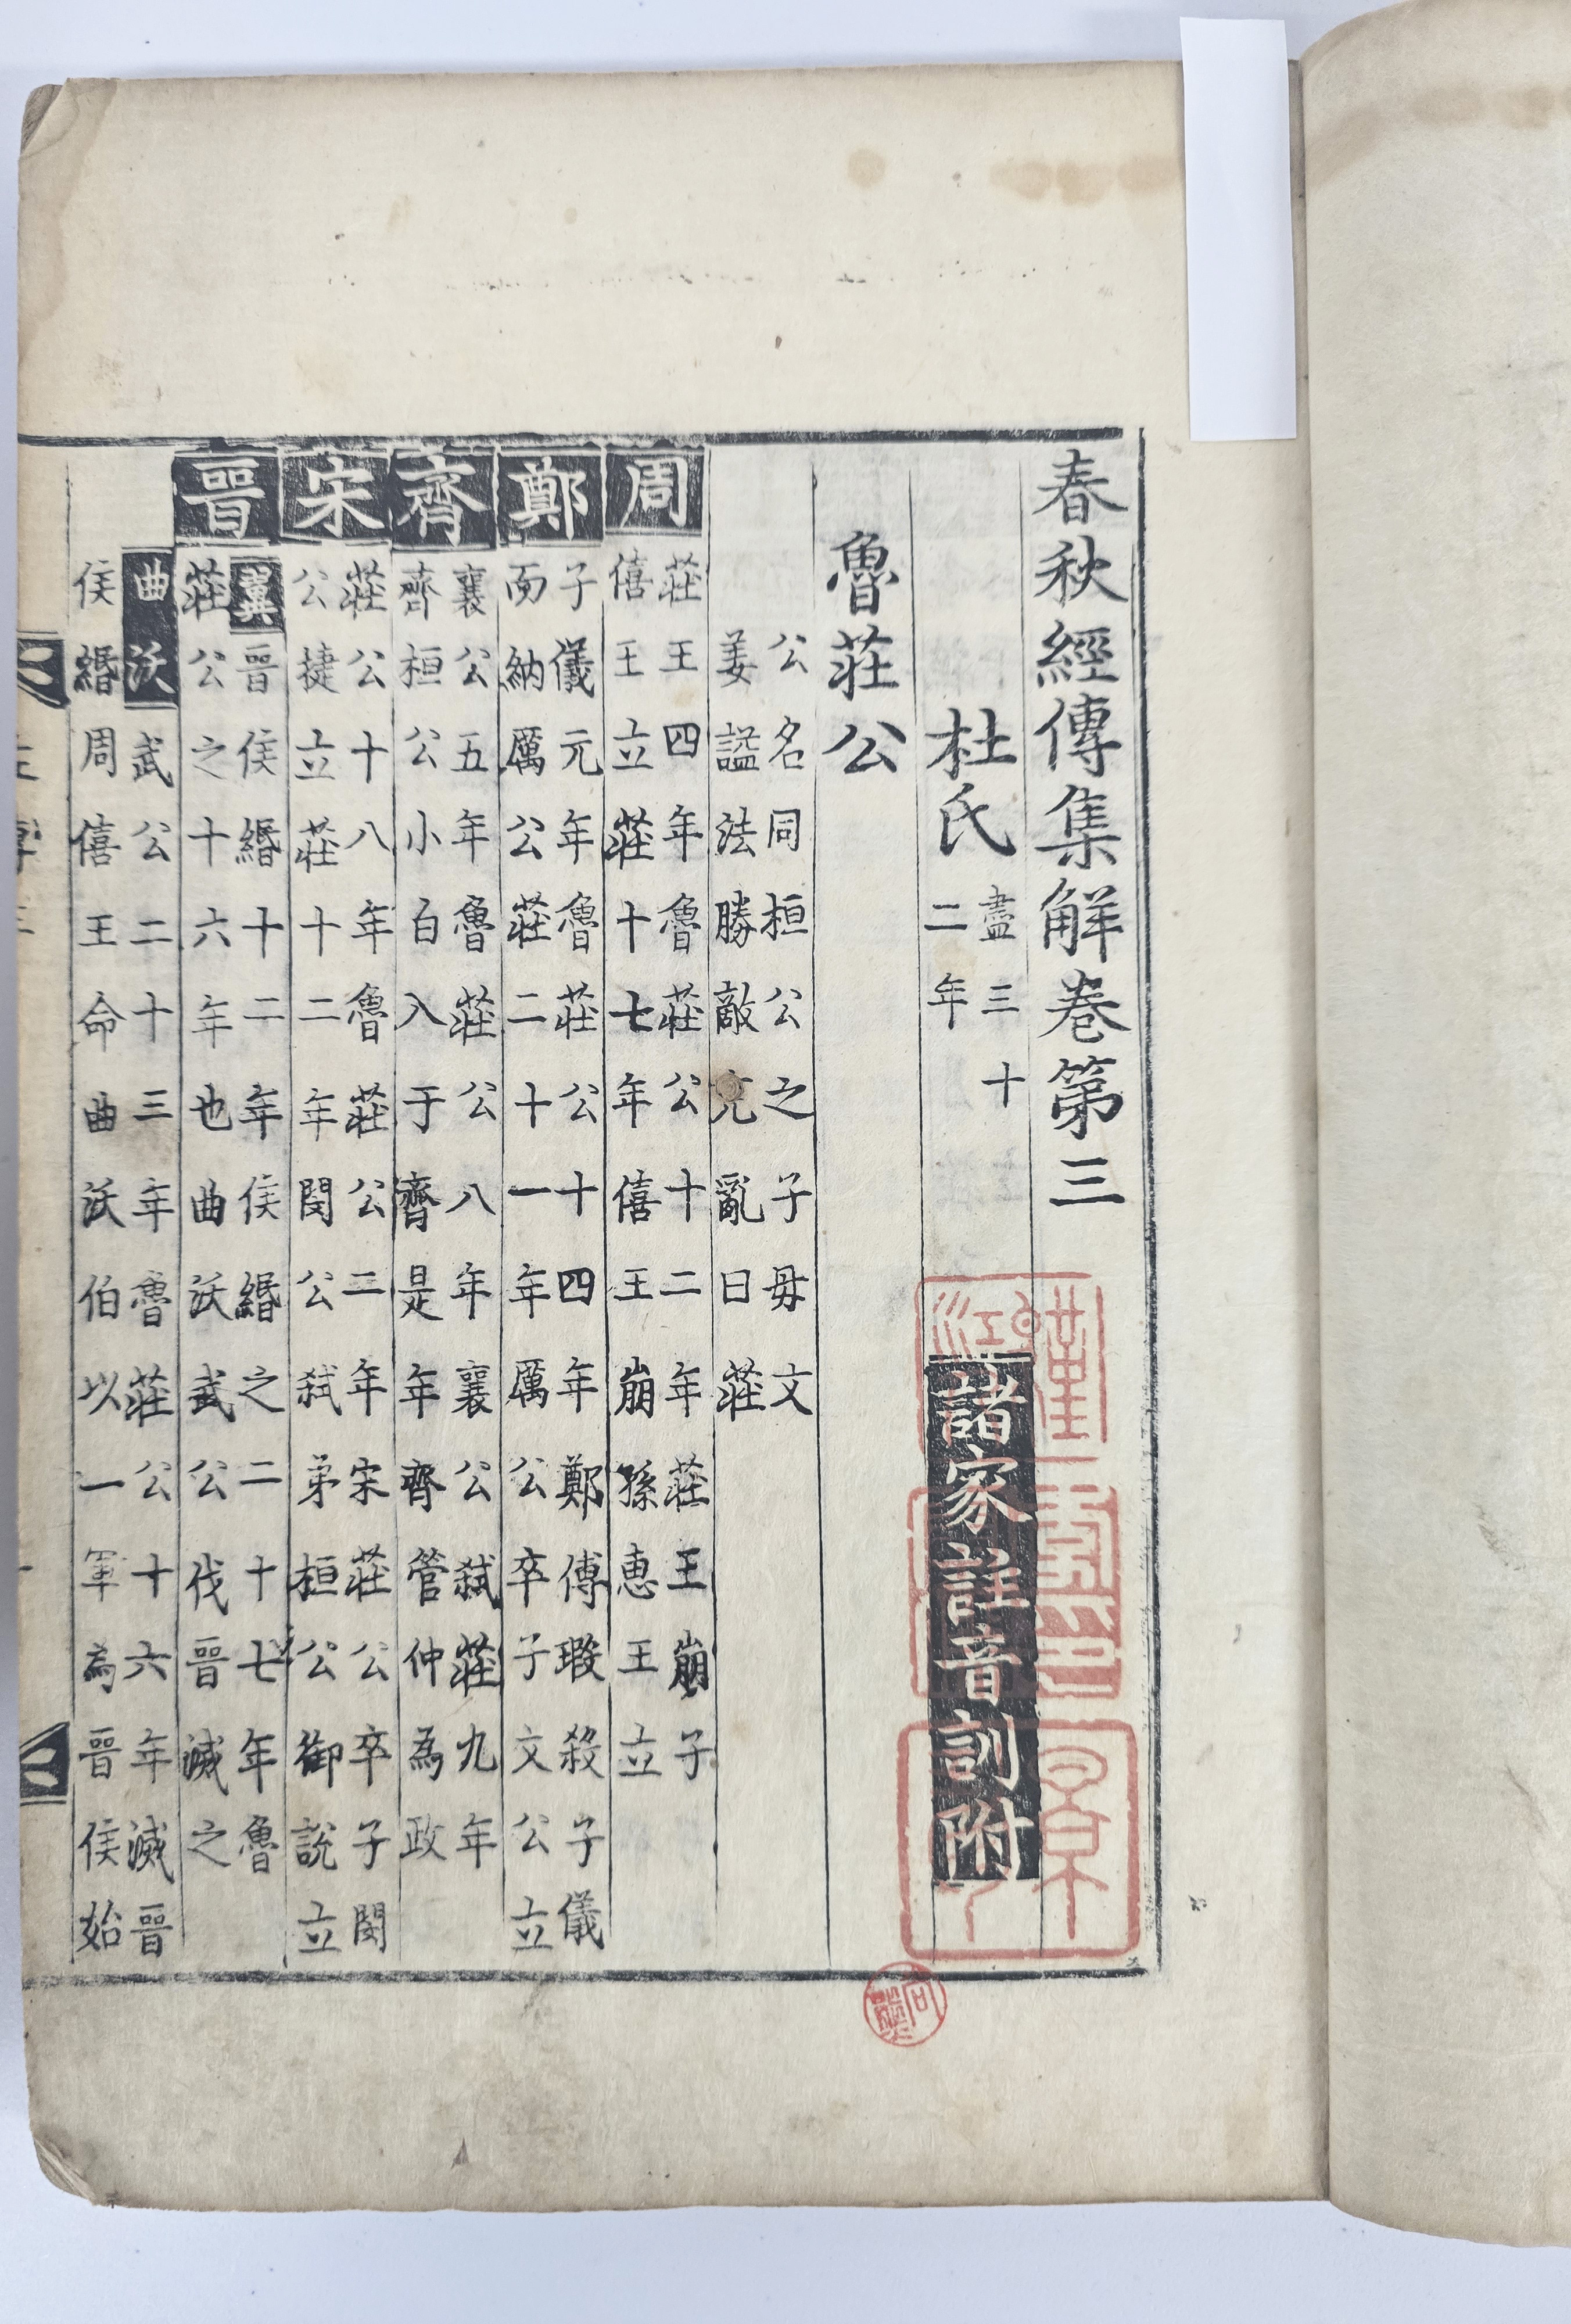 春秋經傳集解卷第三
杜氏
盡三十
二年
諸家註音訓附
魯莊公
公名同桓公之子毋文
姜謚法勝敵克亂曰莊
周
莊王四年魯莊公十二年莊王崩子
僖王立莊十七年僖王崩孫惠王立
鄭
子儀元年魯莊公十四年鄭傅瑕殺子儀
而納厲公莊二十一年厲公卒子文公立
齊
襄公五年魯莊公八年襄公弒莊九年
齊桓公小白入于齊是年齊管仲為政
宋
莊公十八年魯莊公二年宋莊公卒子閔
公捷立莊十二年閔公弒弟桓公御說立
晉
翼晉侯緡十二年侯緡之二十七年魯
莊公之十六年也曲沃武公伐晉滅之
曲沃武公二十三年魯莊公十六年滅晉
侯緡周僖王命曲沃伯以一軍為晉侯始